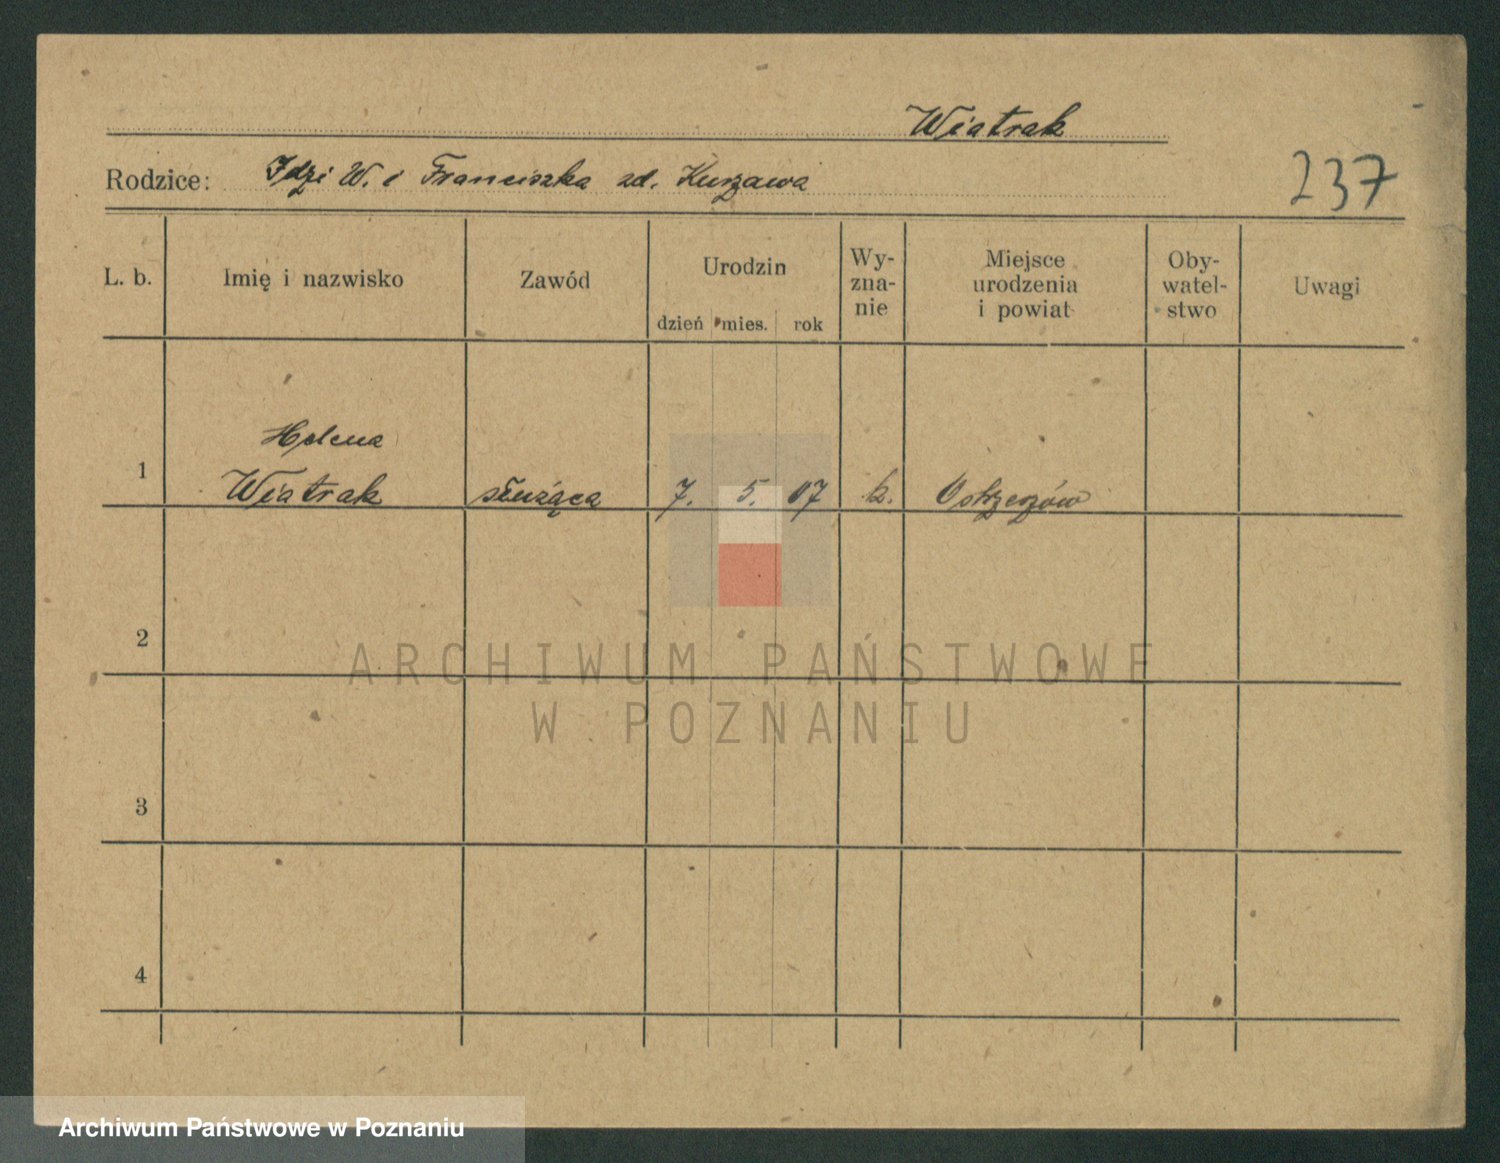 Wiatrak
Rodzice: Idzi W. i Franciszka zd. Kurzawa
237
L. b.
Imię i nazwisko
Zawód
Urodzin
dzień mies. rok
Wy-
zna-
nie
Miejsce
urodzenia
i powiat
Oby-
watel-
stwo
Uwagi
1
Helena
Wiatrak
służąca
7. 5. 07
k.
Ostrzeszów
2
3
4
ARCHIWUM PAŃSTWOWE
W POZNANIU
Archiwum Państwowe w Poznaniu